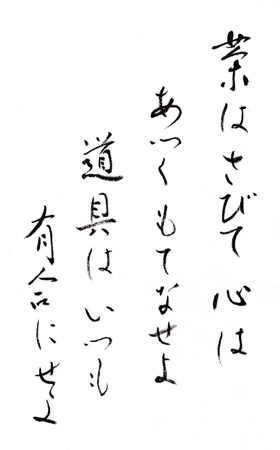 茶はさびて 心は
あつくもてなせよ
道具はいつも
有合にせよ